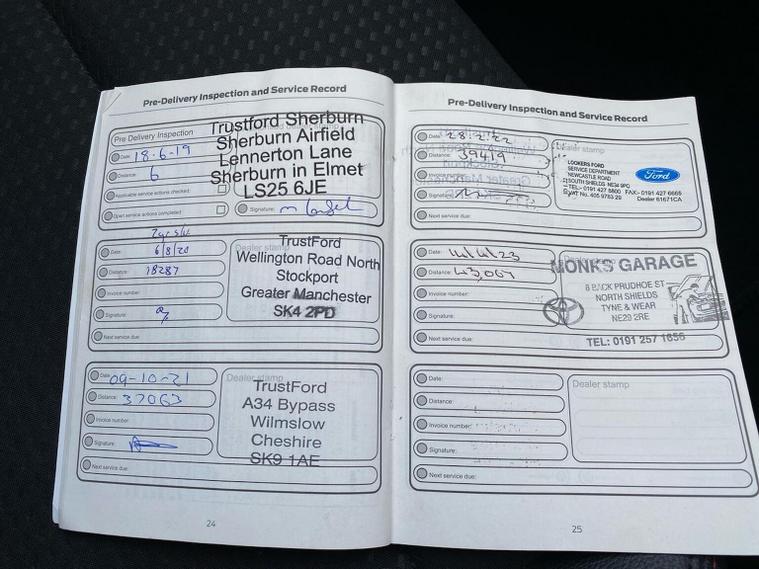 Pre-Delivery Inspection and Service Record
Pre Delivery Inspection
Date: 18-6-19
Distance: 6
Applicable service actions checked:
Open service actions completed:
Trustford Sherburn
Sherburn Airfield
Lennerton Lane
Sherburn in Elmet
LS25 6JE
Signature:
Date: 6/8/20
Distance: 18287
Invoice number:
Signature:
Next service due:
Dealer stamp
TrustFord
Wellington Road North
Stockport
Greater Manchester
SK4 2PD
Date: 09-10-21
Distance: 37063
Invoice number:
Signature:
Next service due:
Dealer stamp
TrustFord
A34 Bypass
Wilmslow
Cheshire
SK9 1AE
24
Pre-Delivery Inspection and Service Record
Date: 28.2.22
Distance: 39419
Invoice number:
Signature:
Next service due:
Dealer stamp
LOOKERS FORD
SERVICE DEPARTMENT
NEWCASTLE ROAD
SOUTH SHIELDS NE34 9PQ
TEL:- 0191 427 5800 FAX:- 0191 427 6666
VAT No. 405 9783 29 Dealer 61671CA
Ford
Date:
Distance: 43,067
Invoice number:
Signature:
Next service due:
MONKS GARAGE
8 BACK PRUDHOE ST
NORTH SHIELDS
TYNE & WEAR
NE29 2RE
TEL: 0191 257 1656
Date:
Distance:
Invoice number:
Signature:
Next service due:
Dealer stamp
25